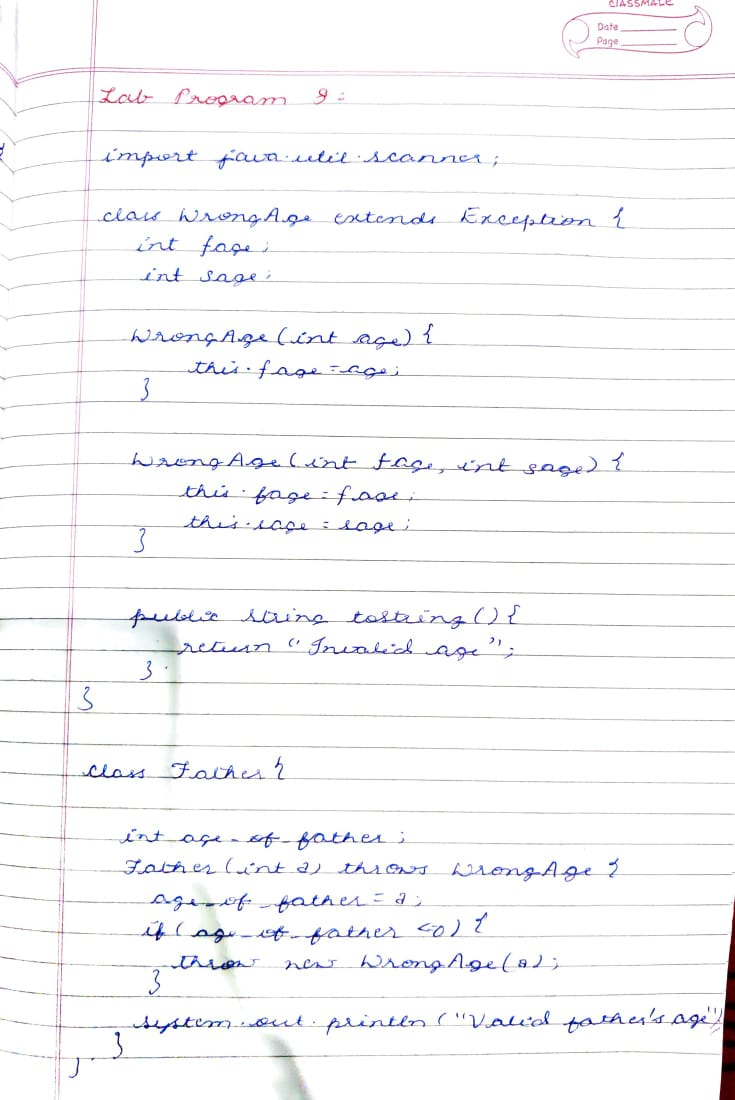 CLASSMATE
Date
Page
Lab Program 9:
import java.util.scanner;
class WrongAge extends Exception {
int fage;
int sage;
WrongAge (int age) {
this.fage = age;
}
WrongAge (int fage, int sage) {
this.fage = fage;
this.sage = sage;
}
public string tostring () {
return "Invalid age";
}
}
class Father {
int age_of_father;
Father (int a) throws WrongAge {
age_of_father = a;
if (age_of_father <0) {
throw new WrongAge (a);
}
system.out.println ("Valid father's age")
}
}